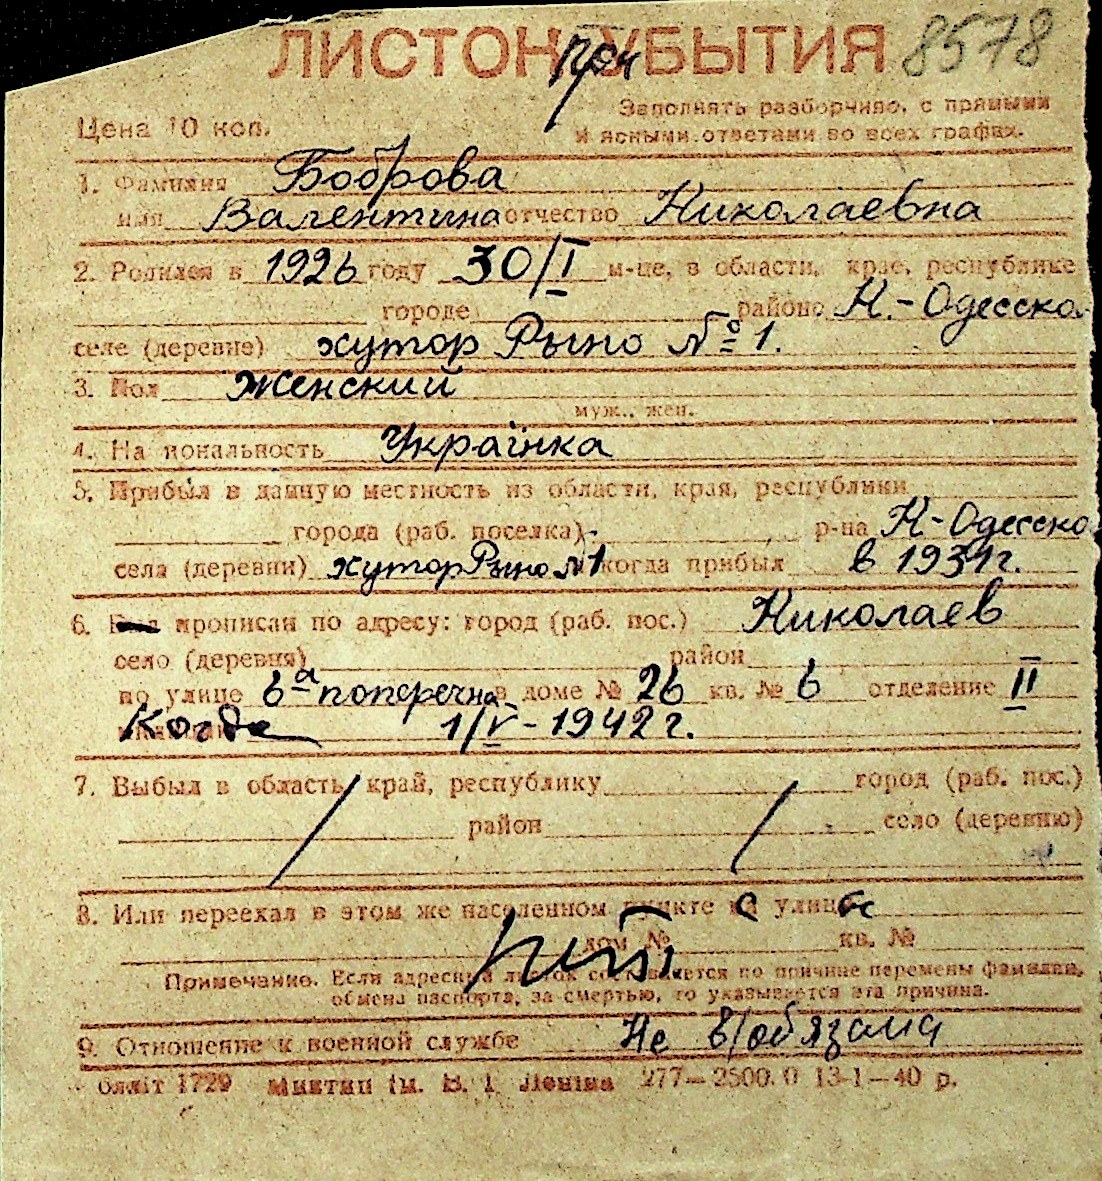 ЛИСТОК УБЫТИЯ 8578
При
Заполнять разборчиво, с прямыми
Цена 10 коп. и ясными ответами во всех графах.
1. Фамилия Боброва
имя Валентина отчество Николаевна
2. Родился в 1926 году 30/I м-це, в области, крае, республике
городе районе Н.-Одесско.
селе (деревне) хутор Рыно №1.
3. Пол Женский
муж., жен.
4. Национальность Українка
5. Прибыл в данную местность из области, края, республики
города (раб. поселка) р-на Н-Одесско
села (деревни) хутор Рыно №1 когда прибыл в 1934г.
6. прописан по адресу: город (раб. пос.) Николаев
село (деревня) район
по улице 6а поперечна в доме № 26 кв. № 6 отделение II
Когда 1/V-1942 г.
7. Выбыл в область, край, республику город (раб. пос.)
район село (деревню)
8. Или переехал в этом же населенном пункте на улицу
дом № кв. №
Примечание. Если адресный листок составляется по причине перемены фамилии,
обмена паспорта, за смертью, то указывается эта причина.
9. Отношение к военной службе Не в/обязана
Обліт 1729 Миктип ім. В. І. Леніна 277—2500.0 13-1—40 р.